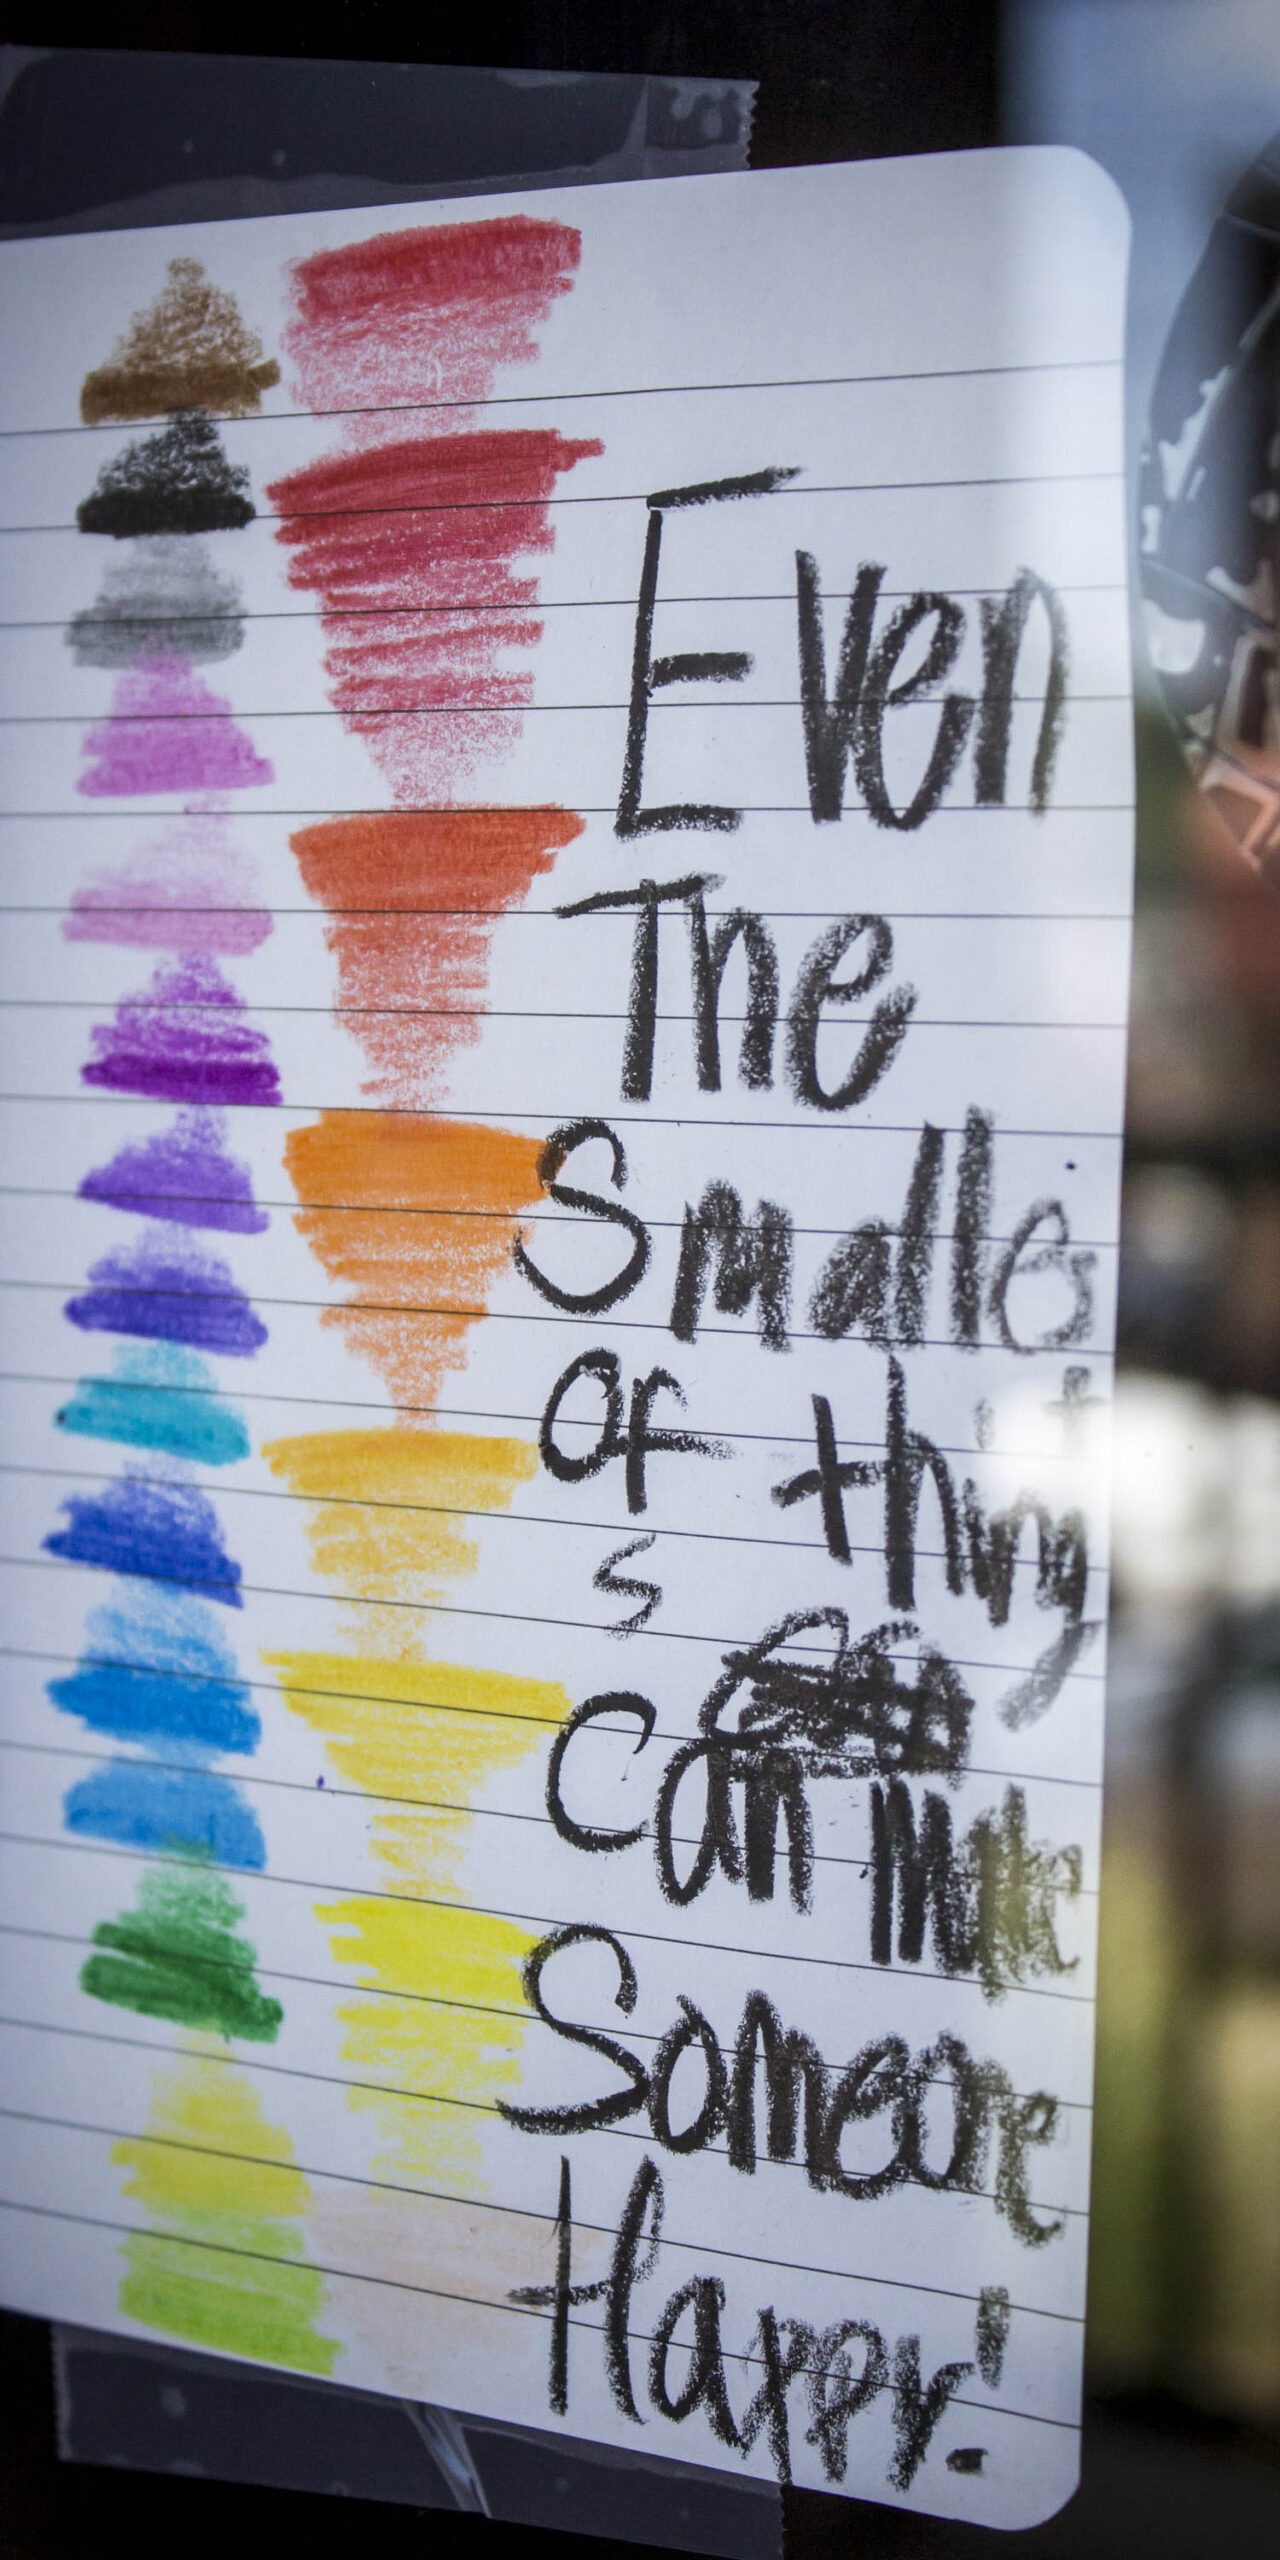 Even
The
Smallest
Of thing
s
Can Make
Someone
Happy!